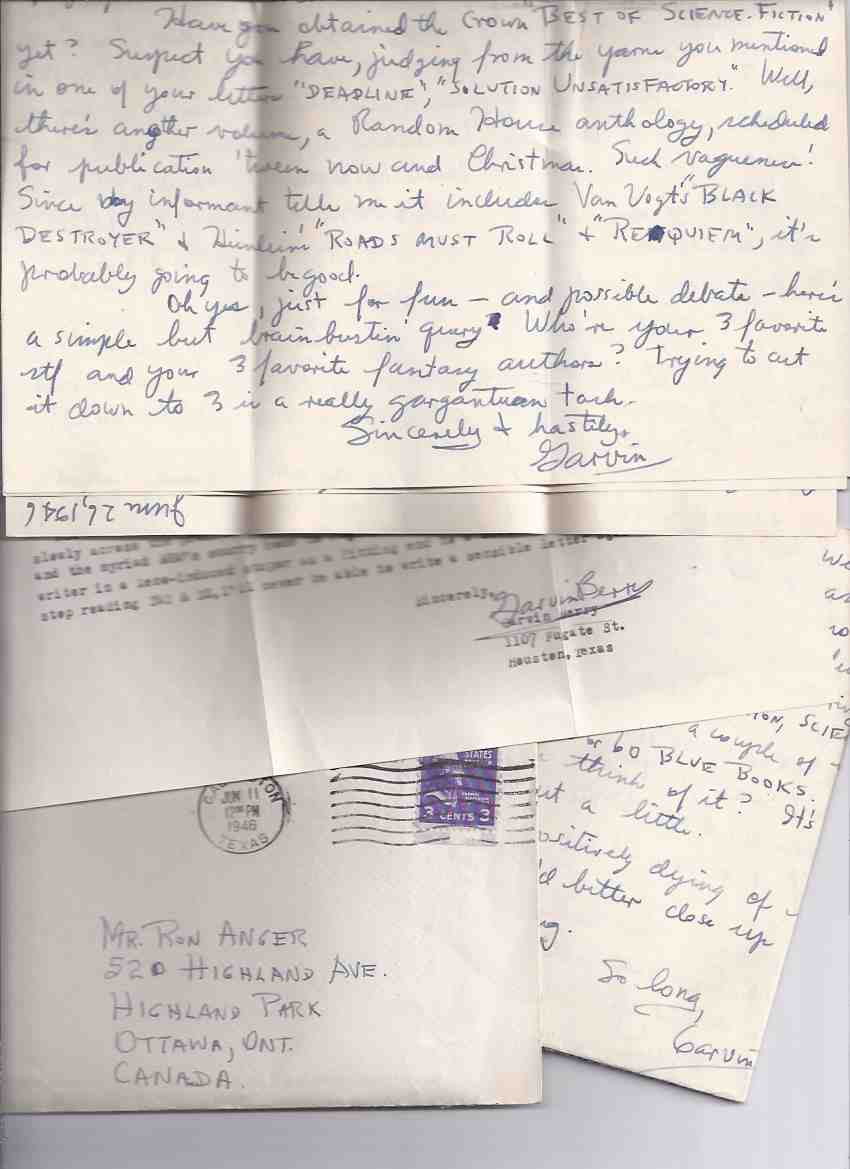 Have you obtained the Crown "BEST OF SCIENCE-FICTION"
yet? Suspect you have, judging from the yarns you mentioned
in one of your letters "DEADLINE", "SOLUTION UNSATISFACTORY." Well,
there's another volume, a Random House anthology, scheduled
for publication 'tween now and Christmas. Such vagueness!
Since my informant tells me it includes Van Vogt's "BLACK
DESTROYER" & Heinlein's "ROADS MUST ROLL" & "REQUIEM", it's
probably going to be good.
Oh yes, just for fun — and possible debate — here's
a simple but brain bustin' query. Who're your 3 favorite
stf and your 3 favorite fantasy authors? Trying to cut
it down to 3 is a really gargantuan task.
Sincerely & hastily,
Garvin
June 26, 1946
slowly across the
and the myriad
writer in a
step reading I'll never be able to write a sensible letter
Sincerely,
Garvin Berry
Garvin Berry
1107 Fugate St.
Houston, Texas
We
SCIE
a couple of
or 60 BLUE BOOKS.
think of it? It's
but a little.
positively dying of
'd better close up
So long,
Garvin
STATES
3 CENTS 3
JUN 11
12 PM
1946
TEXAS
MR. RON ANGER
520 HIGHLAND AVE.
HIGHLAND PARK
OTTAWA, ONT.
CANADA.